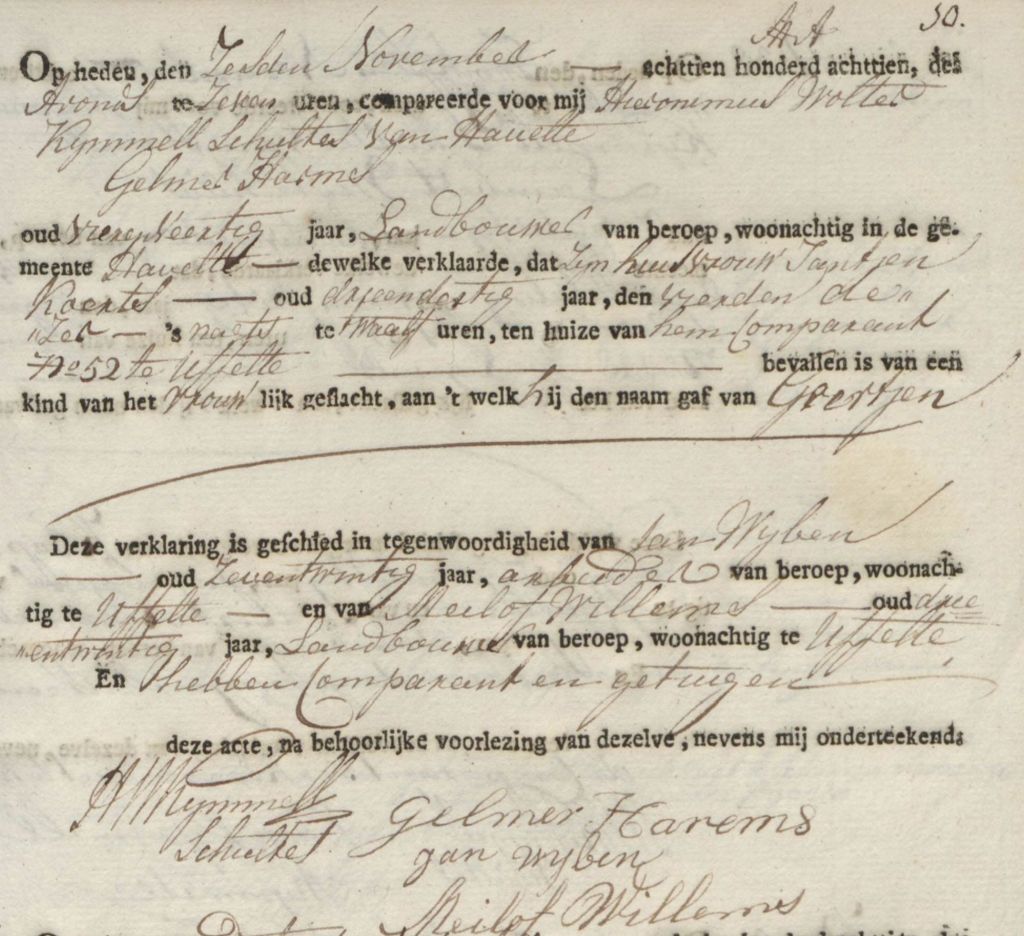 50.
Op heden, den Zesden November — achttien honderd achttien, des
Avonds te Zeven uren, compareerde voor mij Hieronimus Wolter
Kymmell Schultes van Havelte
Gelmer Harms
oud vierenveertig jaar, Landbouwer van beroep, woonachtig in de ge-
meente Havelte — dewelke verklaarde, dat Zijn huisvrouw Jantjen
Koerts — oud drieendertig jaar, den vierden de„
„zer — 's nagts te twaalf uren, ten huize van hem Comparant
No 52 te Uffelte — bevallen is van een
kind van het vrouw lijk geslacht, aan 't welk hij den naam gaf van Geertjen
Deze verklaring is geschied in tegenwoordigheid van Jan Wyben
— oud Zeventwintig jaar, arbeider van beroep, woonach-
tig te Uffelte — en van Meilof Willems — oud drie
„entwintig jaar, Landbouwer van beroep, woonachtig te Uffelte
En hebben Comparant en getuigen
deze acte, na behoorlijke voorlezing van dezelve, nevens mij onderteekend.
HWKymmell
Schultes
Gelmer Harems
gan wyben
Meilof Willems